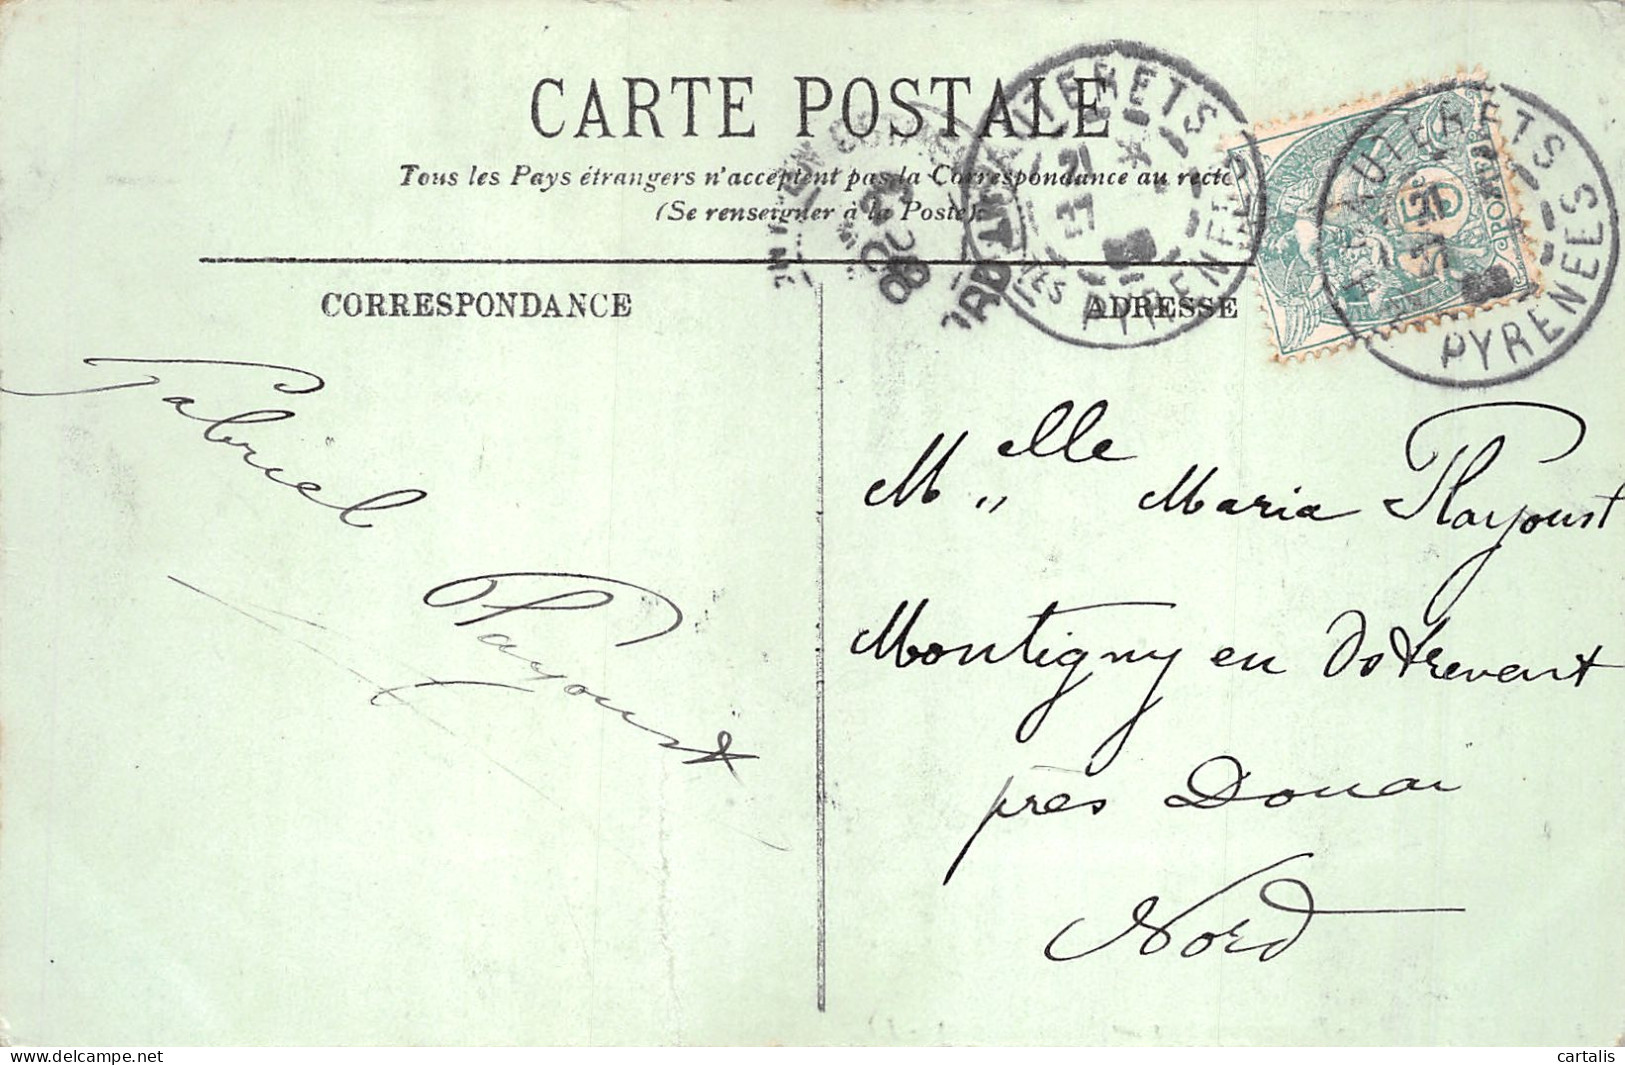 CARTE POSTALE
Tous les Pays étrangers n'acceptent pas la Correspondance au recto
(Se renseigner à la Poste)
CORRESPONDANCE
ADRESSE
CAUTERETS
PYRENEES
CAUTERETS
PYRENEES
5
Gabriel
Playoust
Melle Maria Playoust
Montigny en Ostrevent
près Douai
Nord
cartalis